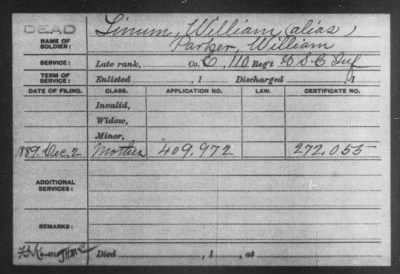 DEAD
NAME OF SOLDIER: Linum, William (alias)
Parker, William
SERVICE: Late rank, Co. E, 110 Reg't U.S.C. Inf
TERM OF SERVICE: Enlisted , 1 Discharged , 1
DATE OF FILING. CLASS. APPLICATION NO. LAW. CERTIFICATE NO.
Invalid,
Widow,
Minor,
1889. Dec. 2 Mother 409.972 272.055
ADDITIONAL SERVICES:
REMARKS:
Died , 1 , at